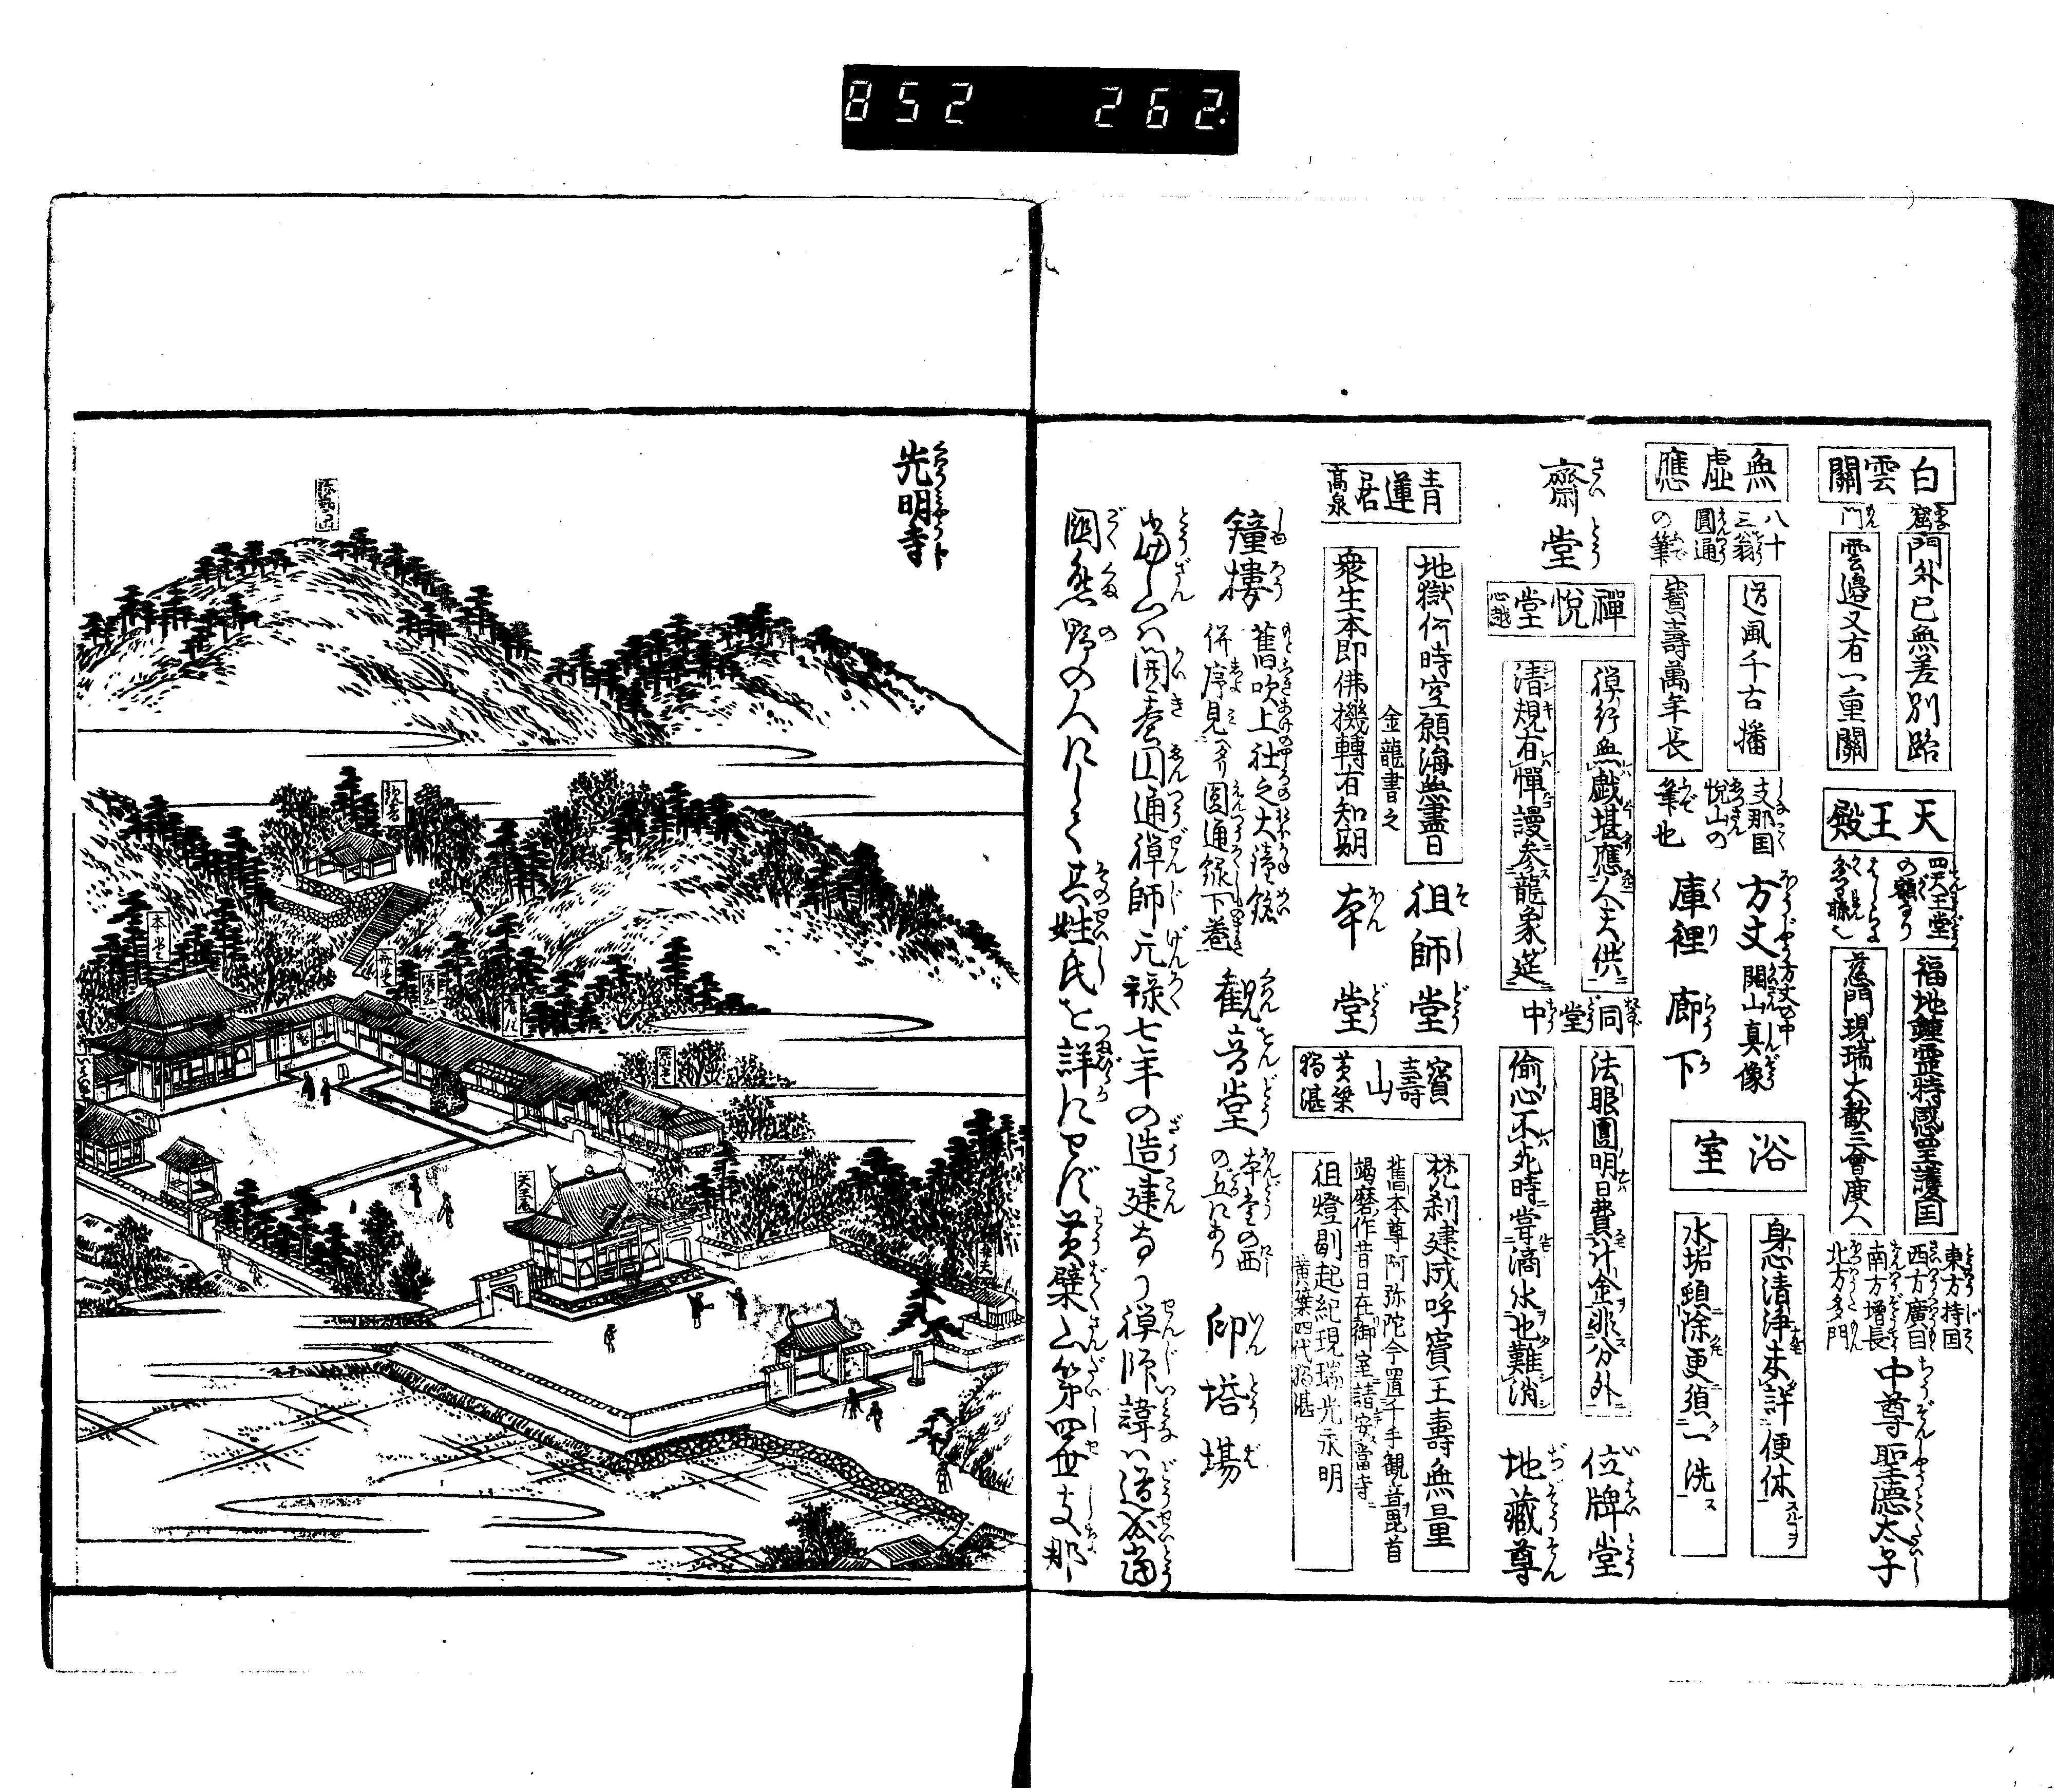 852 262.
白雲關
門外已無差別路
雲邊又有一重關
天王殿
四天王堂
の額なり
福地鍾霊特感王護国
慈門現瑞大歓三會度人
東方持国
西方廣目
南方増長
北方多門
中尊聖德太子
無虚應
八十
三翁
圓通
の筆
道風千古播
寶壽萬年長
支那国
悦山の
筆也
方丈
開山真像
庫裡
廊下
浴室
身心清浄未詳便休
水垢頭除更須一洗
齋堂
禪悦堂
心越
禅行無戯堪應人天供
清規有憚謾参龍象筵
同堂中
法眼圓明日費斗金非分外
偷心不死時嘗滴水也難消
位牌堂
地藏尊
青蓮居
高泉
地獄何時空願海無盡日
衆生本即佛機轉有知期
金龍書之
祖師堂
本堂
寶壽山
黄檗
獨湛
梵刹建成呼寶王壽無量
舊本尊阿弥陀今置千手観音毘首
竭磨作昔日在御室請安當寺
祖燈剔起紀現瑞光永明
黄檗四代獨湛
鐘樓
舊吹上社之大鐘銘
併序見圓通録下巻
観音堂
本堂の西
の丘にあり
印塔場
當山は開基圓通禅師元禄七年の造建なり禅師諱は道成當
國熊野の人にして其姓氏を詳にせず黄檗山第四世支那
光明寺
本堂
天王殿